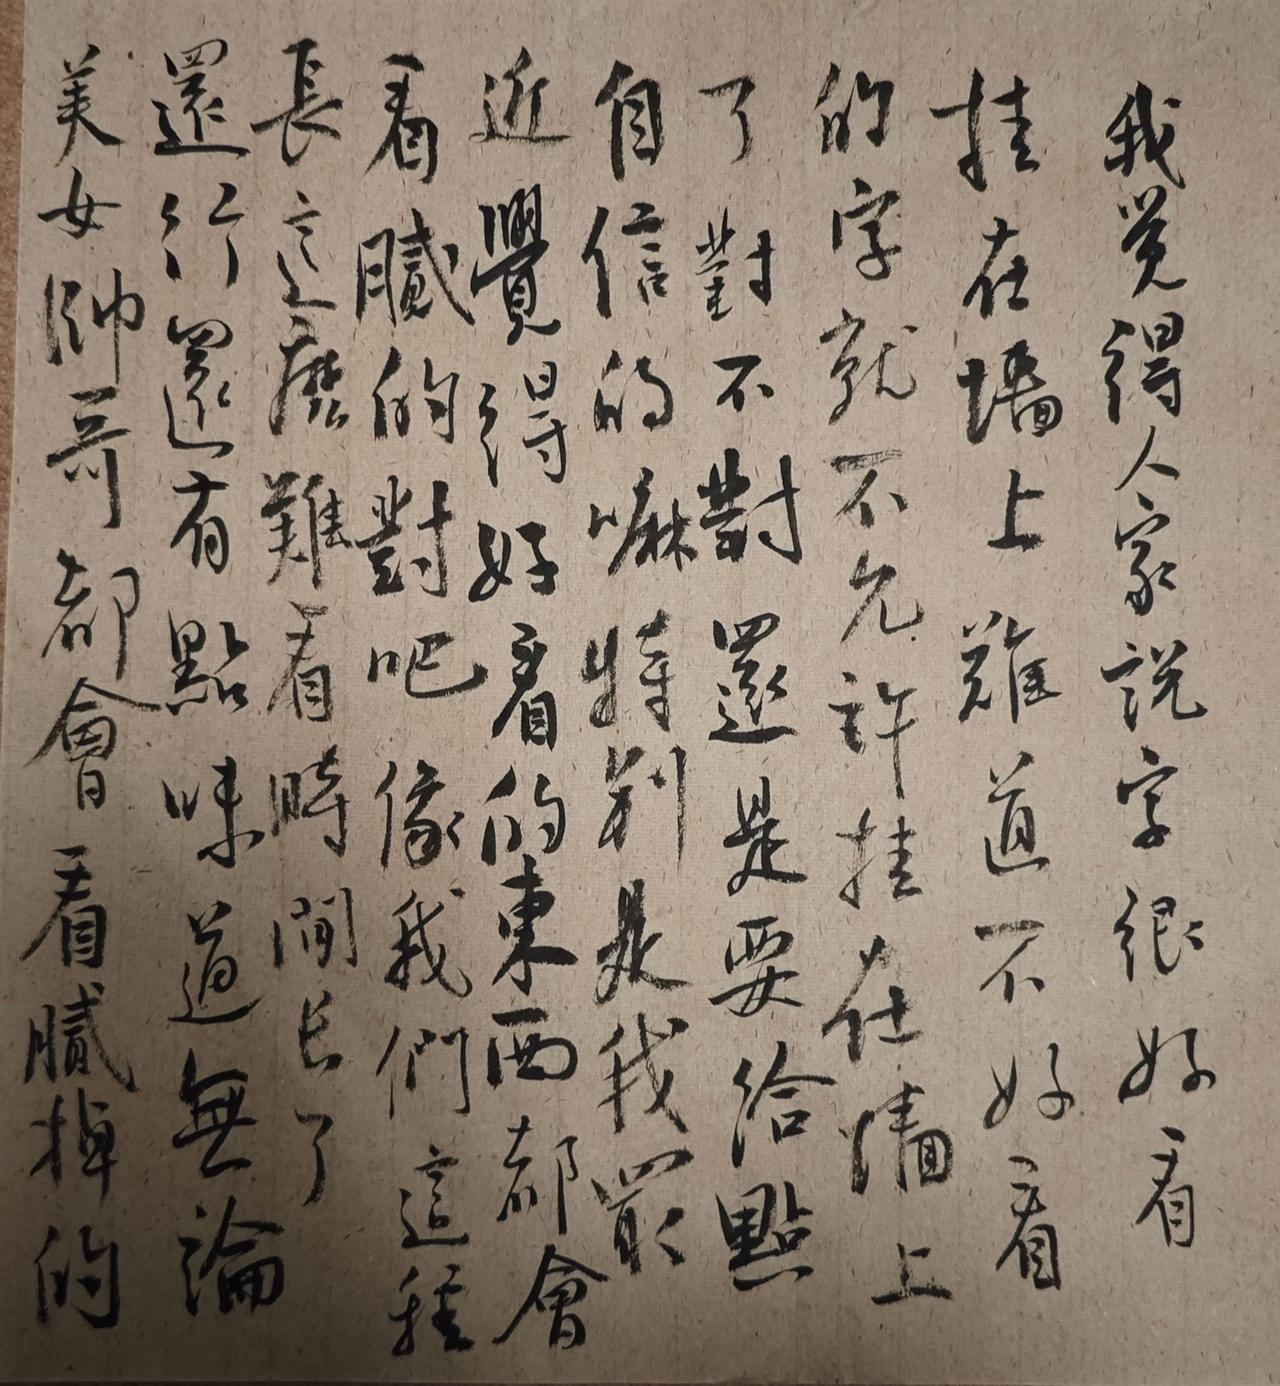 我覚得人家説字很好看
挂在墻上難道不好看
的字就不允許挂在墻上
了對不對還是要給點
自信的嘛特别是我最
近覺得好看的東西都會
看膩的對吧像我們這種
長這麽難看時間长了
還行還有點味道無論
美女帥哥都會看膩掉的